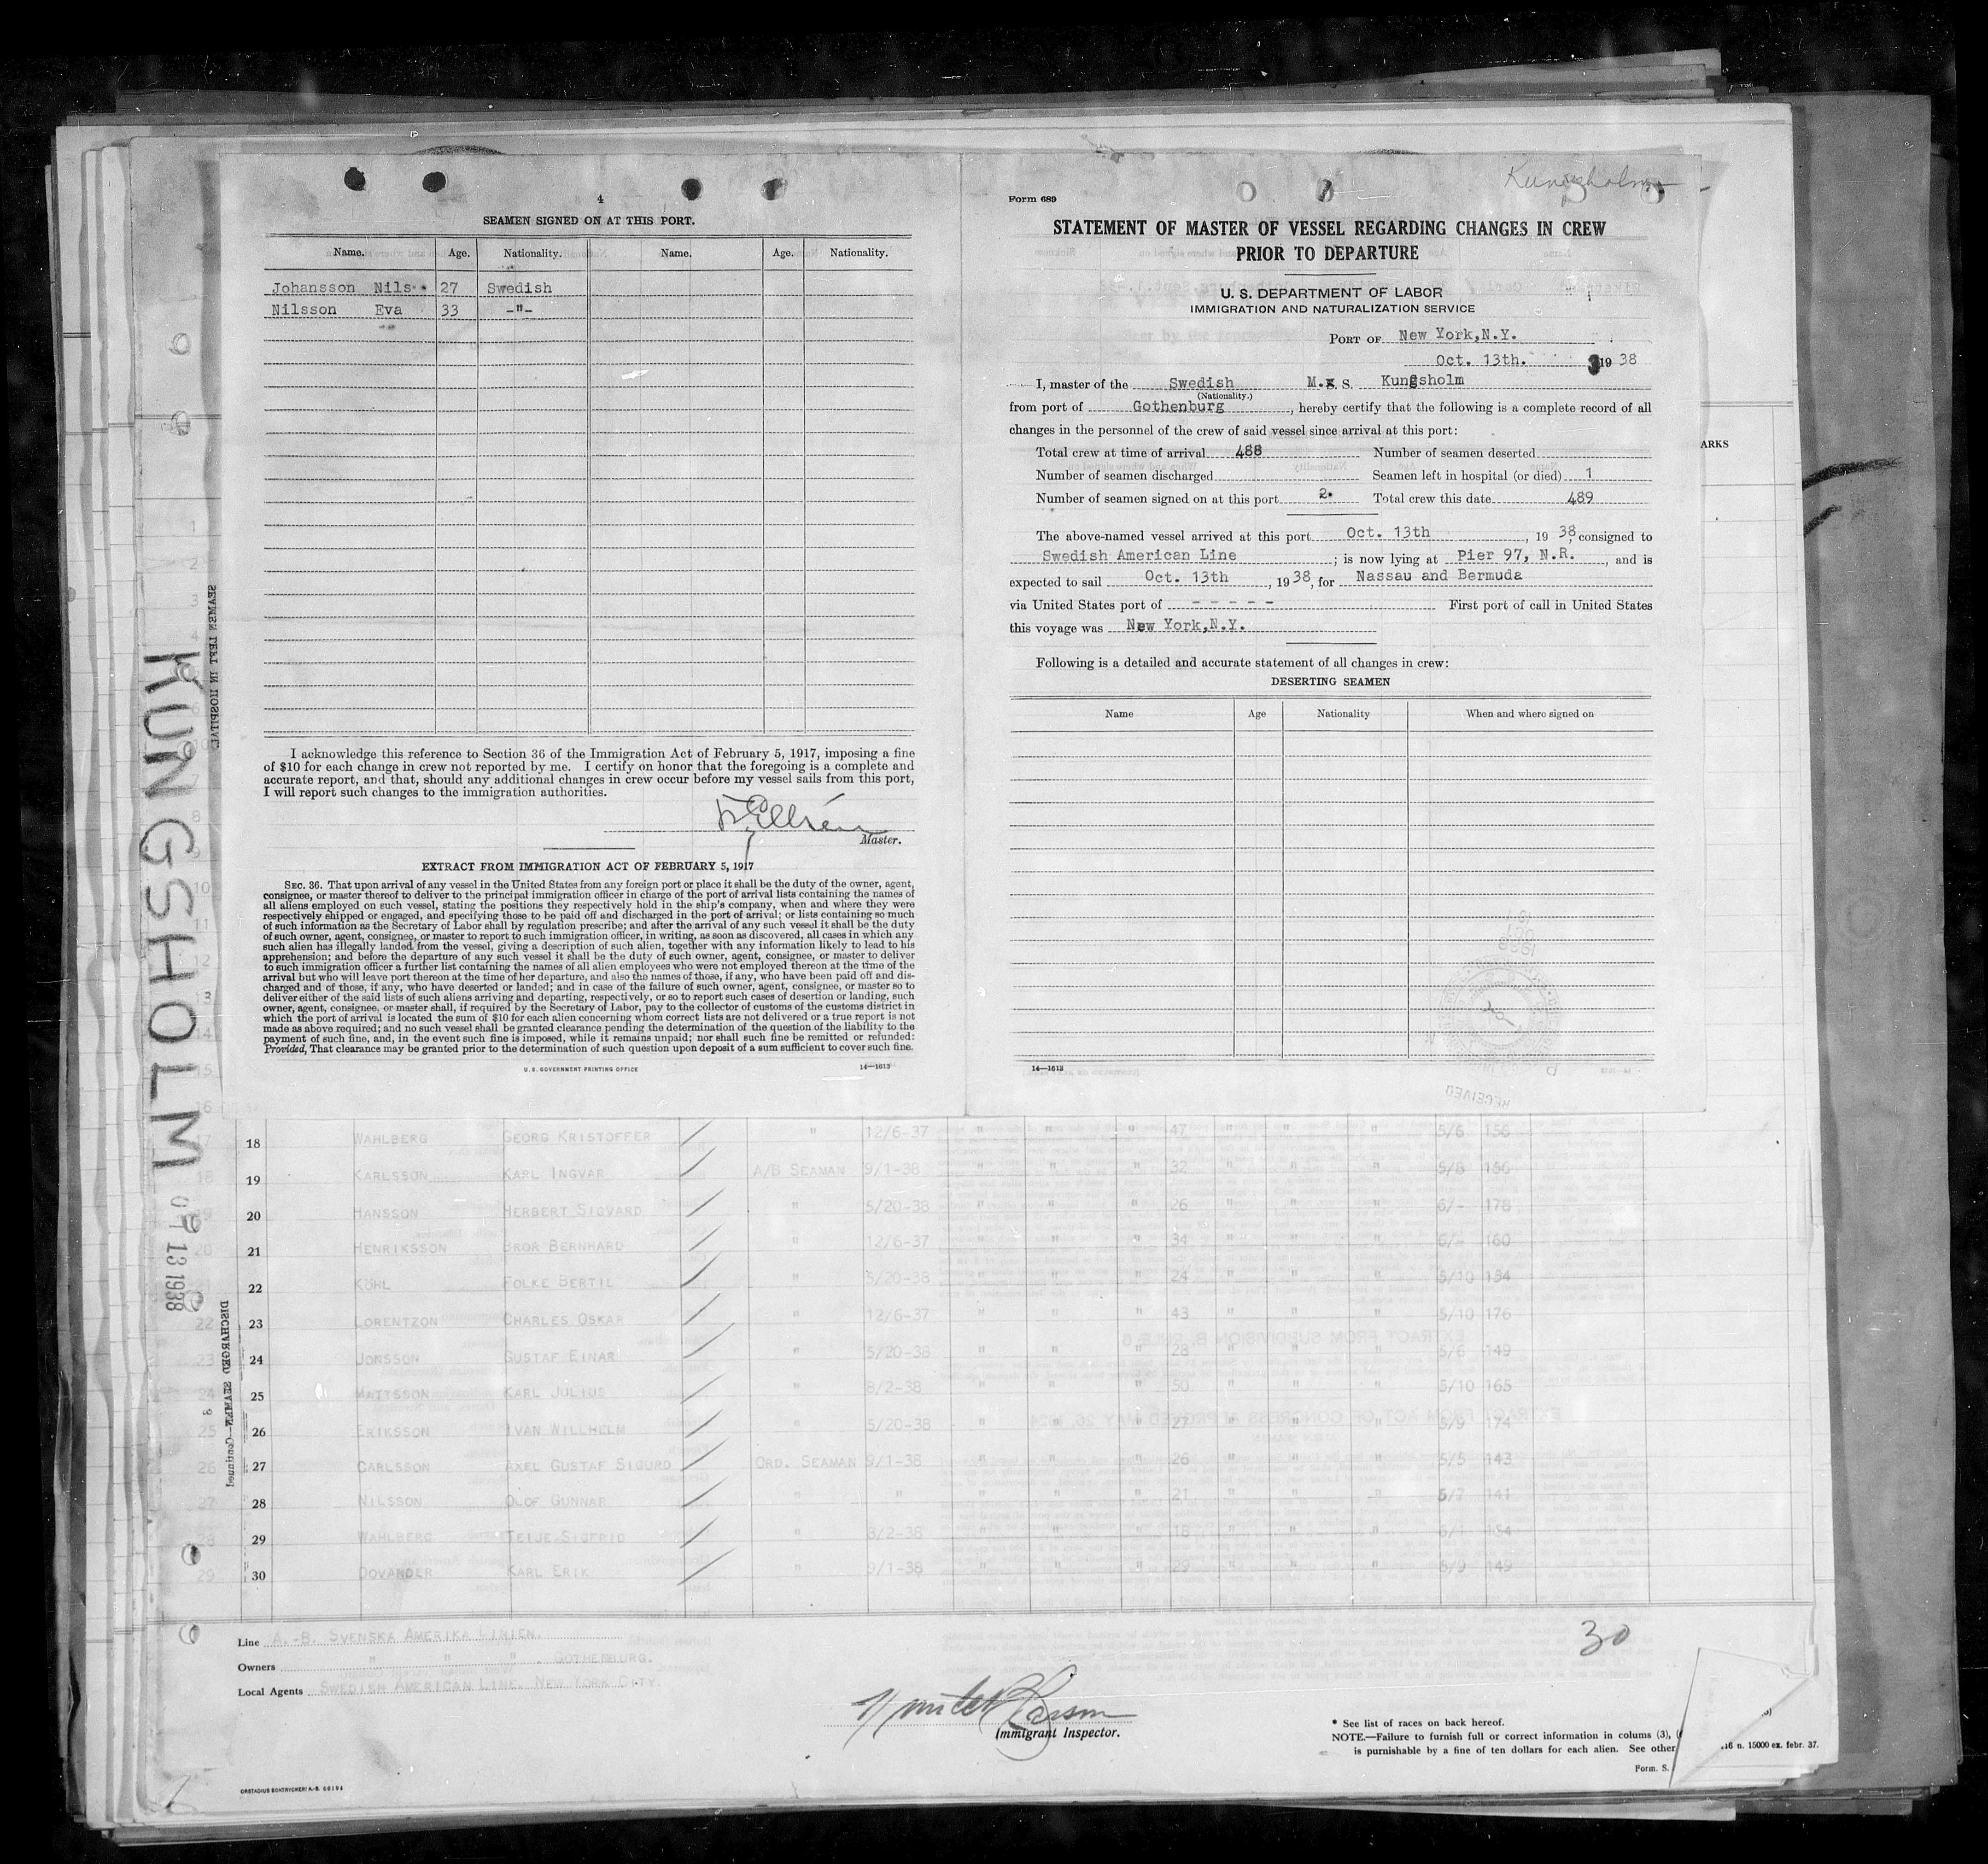 4
SEAMEN SIGNED ON AT THIS PORT.
Name. Age. Nationality. Name. Age. Nationality.
Johansson Nils 27 Swedish
Nilsson Eva 33 -"-
I acknowledge this reference to Section 36 of the Immigration Act of February 5, 1917, imposing a fine
of $10 for each change in crew not reported by me. I certify on honor that the foregoing is a complete and
accurate report, and that, should any additional changes in crew occur before my vessel sails from this port,
I will report such changes to the immigration authorities.
Master.
EXTRACT FROM IMMIGRATION ACT OF FEBRUARY 5, 1917
SEC. 36. That upon arrival of any vessel in the United States from any foreign port or place it shall be the duty of the owner, agent,
consignee, or master thereof to deliver to the principal immigration officer in charge of the port of arrival lists containing the names of
all aliens employed on such vessel, stating the positions they respectively hold in the ship's company, when and where they were
respectively shipped or engaged, and specifying those to be paid off and discharged in the port of arrival; or lists containing so much
of such information as the Secretary of Labor shall by regulation prescribe; and after the arrival of any such vessel it shall be the duty
of such owner, agent, consignee, or master to report to such immigration officer, in writing, as soon as discovered, all cases in which any
such alien has illegally landed from the vessel, giving a description of such alien, together with any information likely to lead to his
apprehension; and before the departure of any such vessel it shall be the duty of such owner, agent, consignee, or master to deliver
to such immigration officer a further list containing the names of all alien employees who were not employed thereon at the time of the
arrival but who will leave port thereon at the time of her departure, and also the names of those, if any, who have been paid off and dis-
charged and of those, if any, who have deserted or landed; and in case of the failure of such owner, agent, consignee, or master so to
deliver either of the said lists of such aliens arriving and departing, respectively, or so to report such cases of desertion or landing, such
owner, agent, consignee, or master shall, if required by the Secretary of Labor, pay to the collector of customs of the customs district in
which the port of arrival is located the sum of $10 for each alien concerning whom correct lists are not delivered or a true report is not
made as above required; and no such vessel shall be granted clearance pending the determination of the question of the liability to the
payment of such fine, and, in the event such fine is imposed, while it remains unpaid; nor shall such fine be remitted or refunded:
Provided, That clearance may be granted prior to the determination of such question upon deposit of a sum sufficient to cover such fine.
U. S. GOVERNMENT PRINTING OFFICE 14—1613
Kungsholm
Form 689
STATEMENT OF MASTER OF VESSEL REGARDING CHANGES IN CREW
PRIOR TO DEPARTURE
U. S. DEPARTMENT OF LABOR
IMMIGRATION AND NATURALIZATION SERVICE
PORT OF New York,N.Y.
Oct. 13th. 19 38
I, master of the Swedish M. S. Kungsholm
(Nationality.)
from port of Gothenburg, hereby certify that the following is a complete record of all
changes in the personnel of the crew of said vessel since arrival at this port:
Total crew at time of arrival 488 Number of seamen deserted
Number of seamen discharged Seamen left in hospital (or died) 1
Number of seamen signed on at this port 2. Total crew this date 489
The above-named vessel arrived at this port Oct. 13th, 19 38, consigned to
Swedish American Line; is now lying at Pier 97, N.R., and is
expected to sail Oct. 13th, 19 38, for Nassau and Bermuda
via United States port of - - - - - First port of call in United States
this voyage was New York,N.Y.
Following is a detailed and accurate statement of all changes in crew:
DESERTING SEAMEN
Name Age Nationality When and where signed on
14—1613
ARKS
KUNGSHOLM
13 1938
18 WAHLBERG GEORG KRISTOFFER " 12/6-37 " " " 47 " " " 5/6 156
19 KARLSSON KARL INGVAR A/B SEAMAN 9/1-38 " " " 32 " " " 5/8 166
20 HANSSON HERBERT SIGVARD " 5/20-38 " " " 26 " " " 6/- 178
21 HENRIKSSON BROR BERNHARD " 12/6-37 " " " 34 " " " 160
22 KÖHL FOLKE BERTIL " 5/20-38 " " " 24 " " " 5/10 154
23 LORENTZON CHARLES OSKAR " 12/6-37 " " " 43 " " " 5/10 176
24 JONSSON GUSTAF EINAR " 5/20-38 " " " 28 " " " 5/6 149
25 MATTSSON KARL JULIUS " 8/2-38 " " " 50 " " " 5/10 165
26 ERIKSSON IVAN WILLHELM " 5/20-38 " " " 27 " " " 5/9 174
27 CARLSSON AXEL GUSTAF SIGURD ORD. SEAMAN 9/1-38 " " " 26 " " " 5/5 143
28 NILSSON OLOF GUNNAR " " " " " 21 " " " 5/7 141
29 WAHLBERG TEIJE SIGFRID " 8/2-38 " " " 18 " " " 6/1 154
30 DOVANDER KARL ERIK " 9/1-38 " " " 29 " " " 5/9 149
30
Line A.-B. SVENSKA AMERIKA LINIEN.
Owners " " " . GOTHENBURG.
Local Agents SWEDISH AMERICAN LINE. NEW YORK CITY.
Immigrant Inspector.
* See list of races on back hereof.
NOTE.—Failure to furnish full or correct information in colums (3),
is purnishable by a fine of ten dollars for each alien. See other
Form. S.
16 n. 15000 ex. febr. 37.